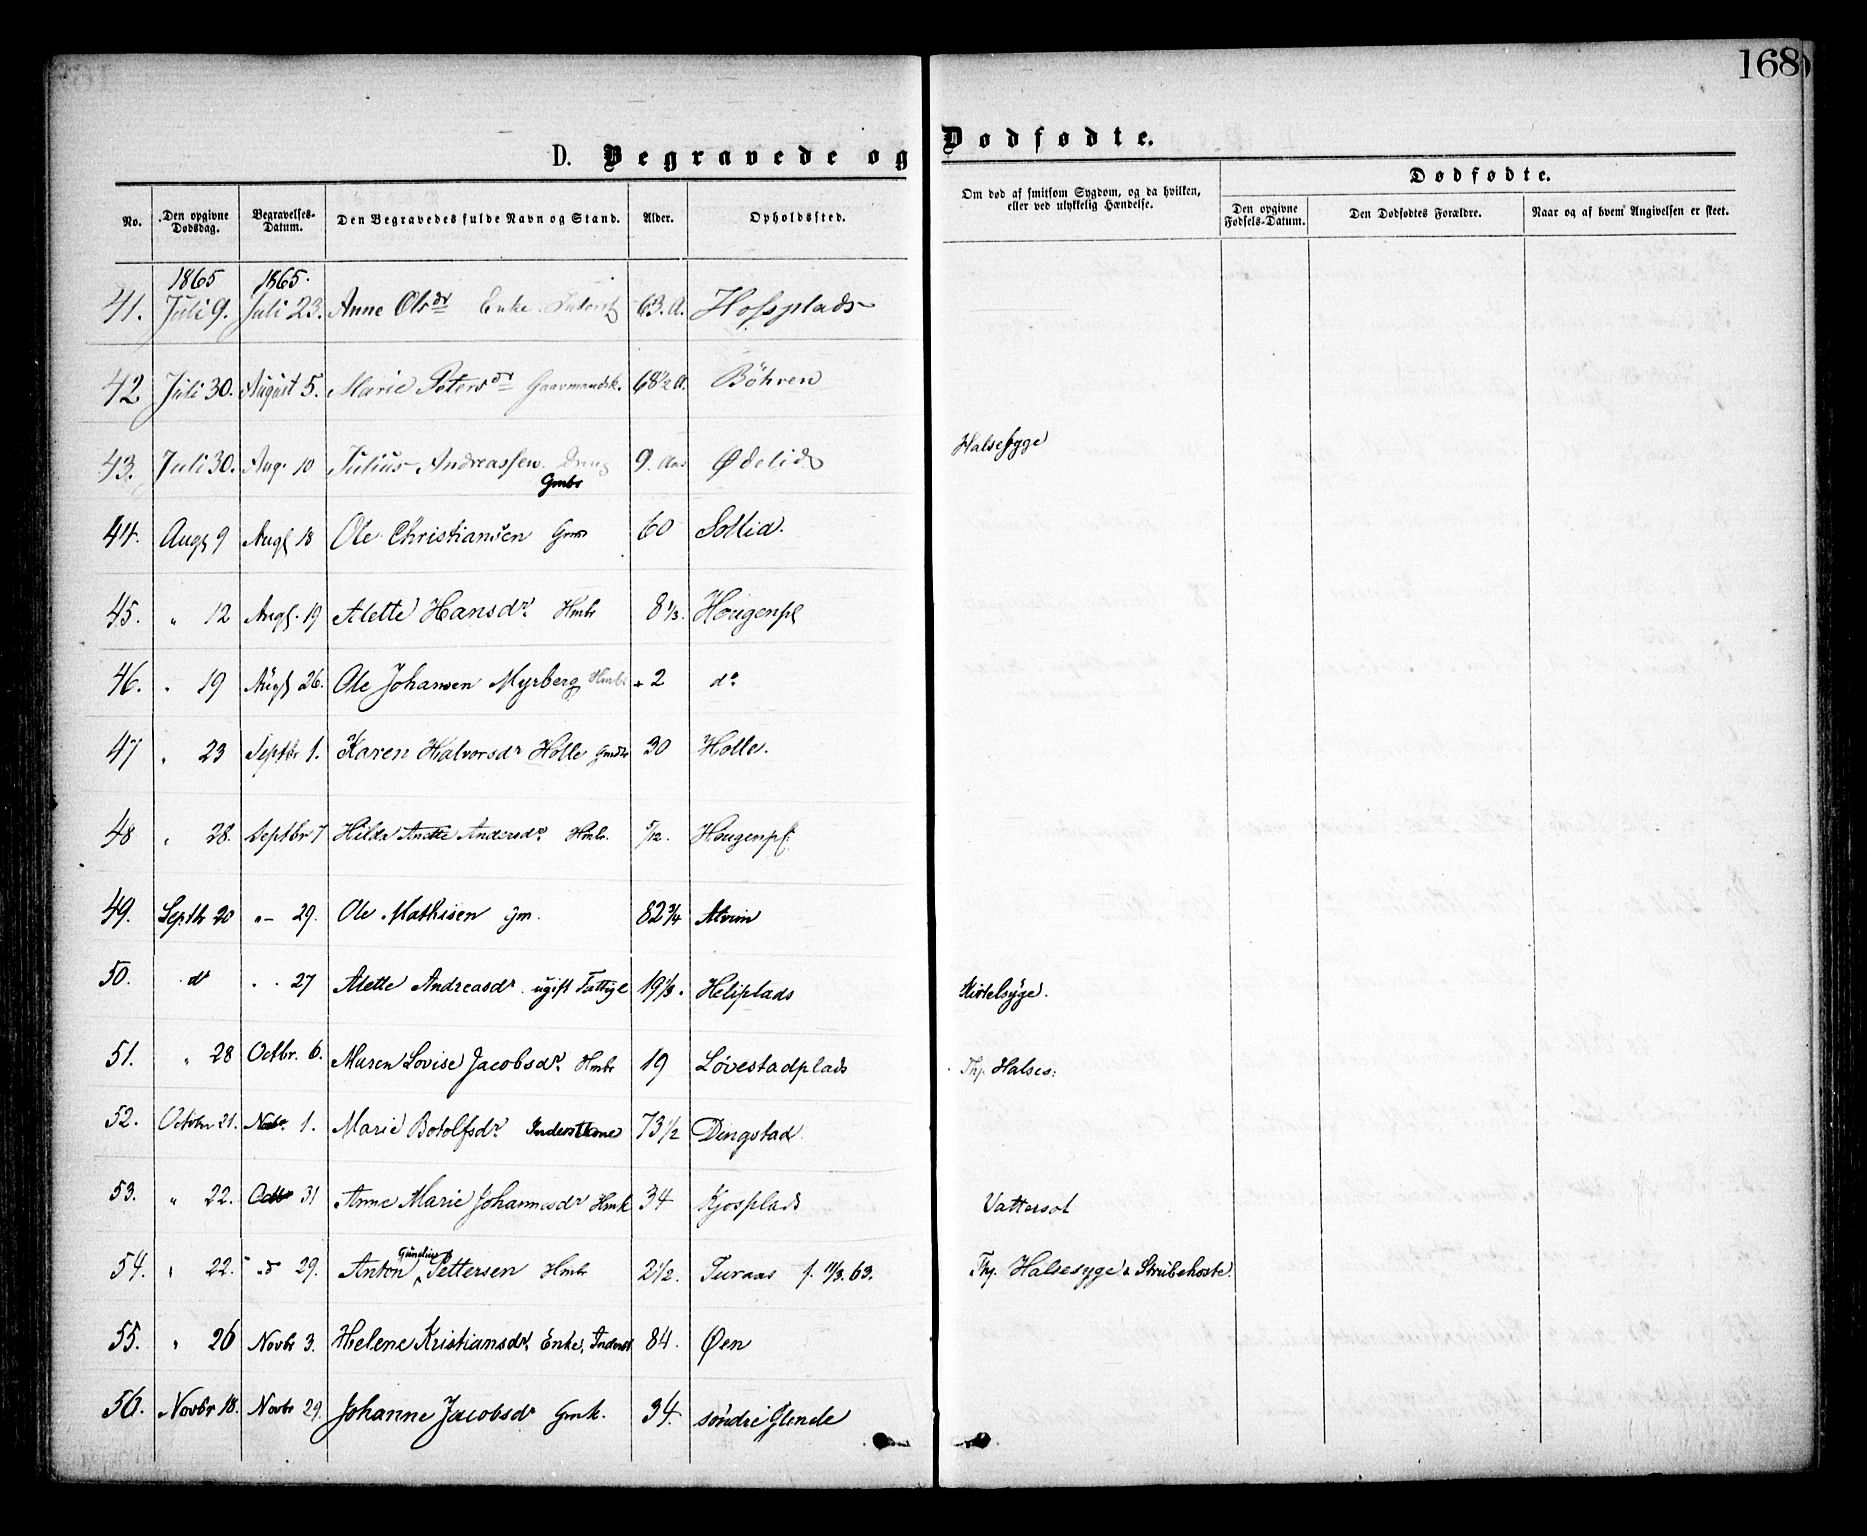 168
D. Begravede og Dødfødte.
No. Den opgivne Dødsdag. Begravelses-Datum. Den Begravedes fulde Navn og Stand. Alder. Opholdssted. Om død af smitsom Sygdom, og da hvilken, eller ved ulykkelig Hændelse. Dødfødte.
Den opgivne Fødsels-Datum. Den Dødfødtes Forældre. Naar og af hvem Angivelsen er skeet.
1865 1865.
41. Juli 9. Juli 23. Anne Olsdr Enke Inderst 63. A. Hofsplads
42 Juli 30. August 5. Marie Petersdr Gaarmandsk. 68½ A. Böhren
43. Juli 30. Aug. 10 Julius Andreassen Dreng 9. Aar Ødelid Halsesyge
Gmbr
44. Augs 9 Augs 18 Ole Christiansen Gmd 60 Sollid.
45. " 12 Augs. 19 Alette Hansdr. Hmbr 8 1/3. Hougenpl
46. " 19 Augs 26. Ole Johansen Myrberg Hmbr 2 do
47 " 23 Septbr 1. Karen Halvorsdr Holle 30 Holle.
48 " 28. Septbr 7 Hilda Anette Andersdr. Hmbr. 5/12. Hougenpl.
49. Septbr 20 " – 29. Ole Mathisen gm. 82¾ Alvim
50. do " " 27 Alette Andreasdr. ugift Fattig 19 1/3. Heliplads Kirtelsyge.
51. " 28 Octbr. 6. Maren Lovise Jacobsdr. Hmbr 19 Løvestadplads Thf. Halses:
52. Octobr 21. Nobr. 1. Marie Botolfsdr. Inderstkone 73½ Dingstad.
53. " 22. Octbr 31 Anne Marie Johannesdr Hmk 34 Kjosplads Vattersot
54. " 22. " d 29. Anton Pettersen Hmbr 2½. Turaas f. 11/3. 63. Thf. Halsesyge & Strubehoste.
55. " 26 Novbr 3. Helene Kristiansdr. Enke, Inderst 84. Øen
56. Novbr 18. Novbr 29. Johanne Jacobsdr Gmk. 34. søndre Glende